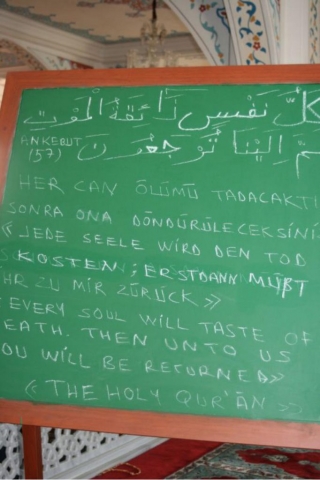 كُلُّ نَفْسٍ ذَائِقَةُ الْمَوْتِ
ثُمَّ إِلَيْنَا تُرْجَعُونَ
ANKEBUT
(57)
HER CAN ÖLÜMÜ TADACAKTI
SONRA ONA DÖNDÜRÜLECEKSİNİ
« JEDE SEELE WIRD DEN TOD
KOSTEN; ERSTDANN MÜßT
IHR ZU MIR ZÜRÜCK »
EVERY SOUL WILL TASTE OF
EATH. THEN UNTO US
OU WILL BE RETURNED»
« THE HOLY QUR'ĀN »